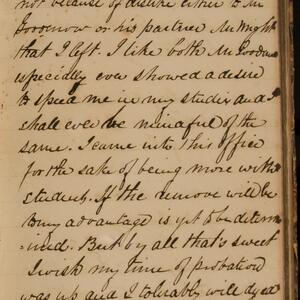 not because of dislike either to Mr
Goodnow or his partner Mr Wright
that I left. I like both Mr Goodnow
especially ever showed a desire
to speed me in my studies and I
shall ever be mindful of the
same. I came into this office
for the sake of being more with
students. If the remove will be
to my advantage is yet to be determ
=ined. But by all that's sweet
I wish my time of probation
was up and I tolerably will